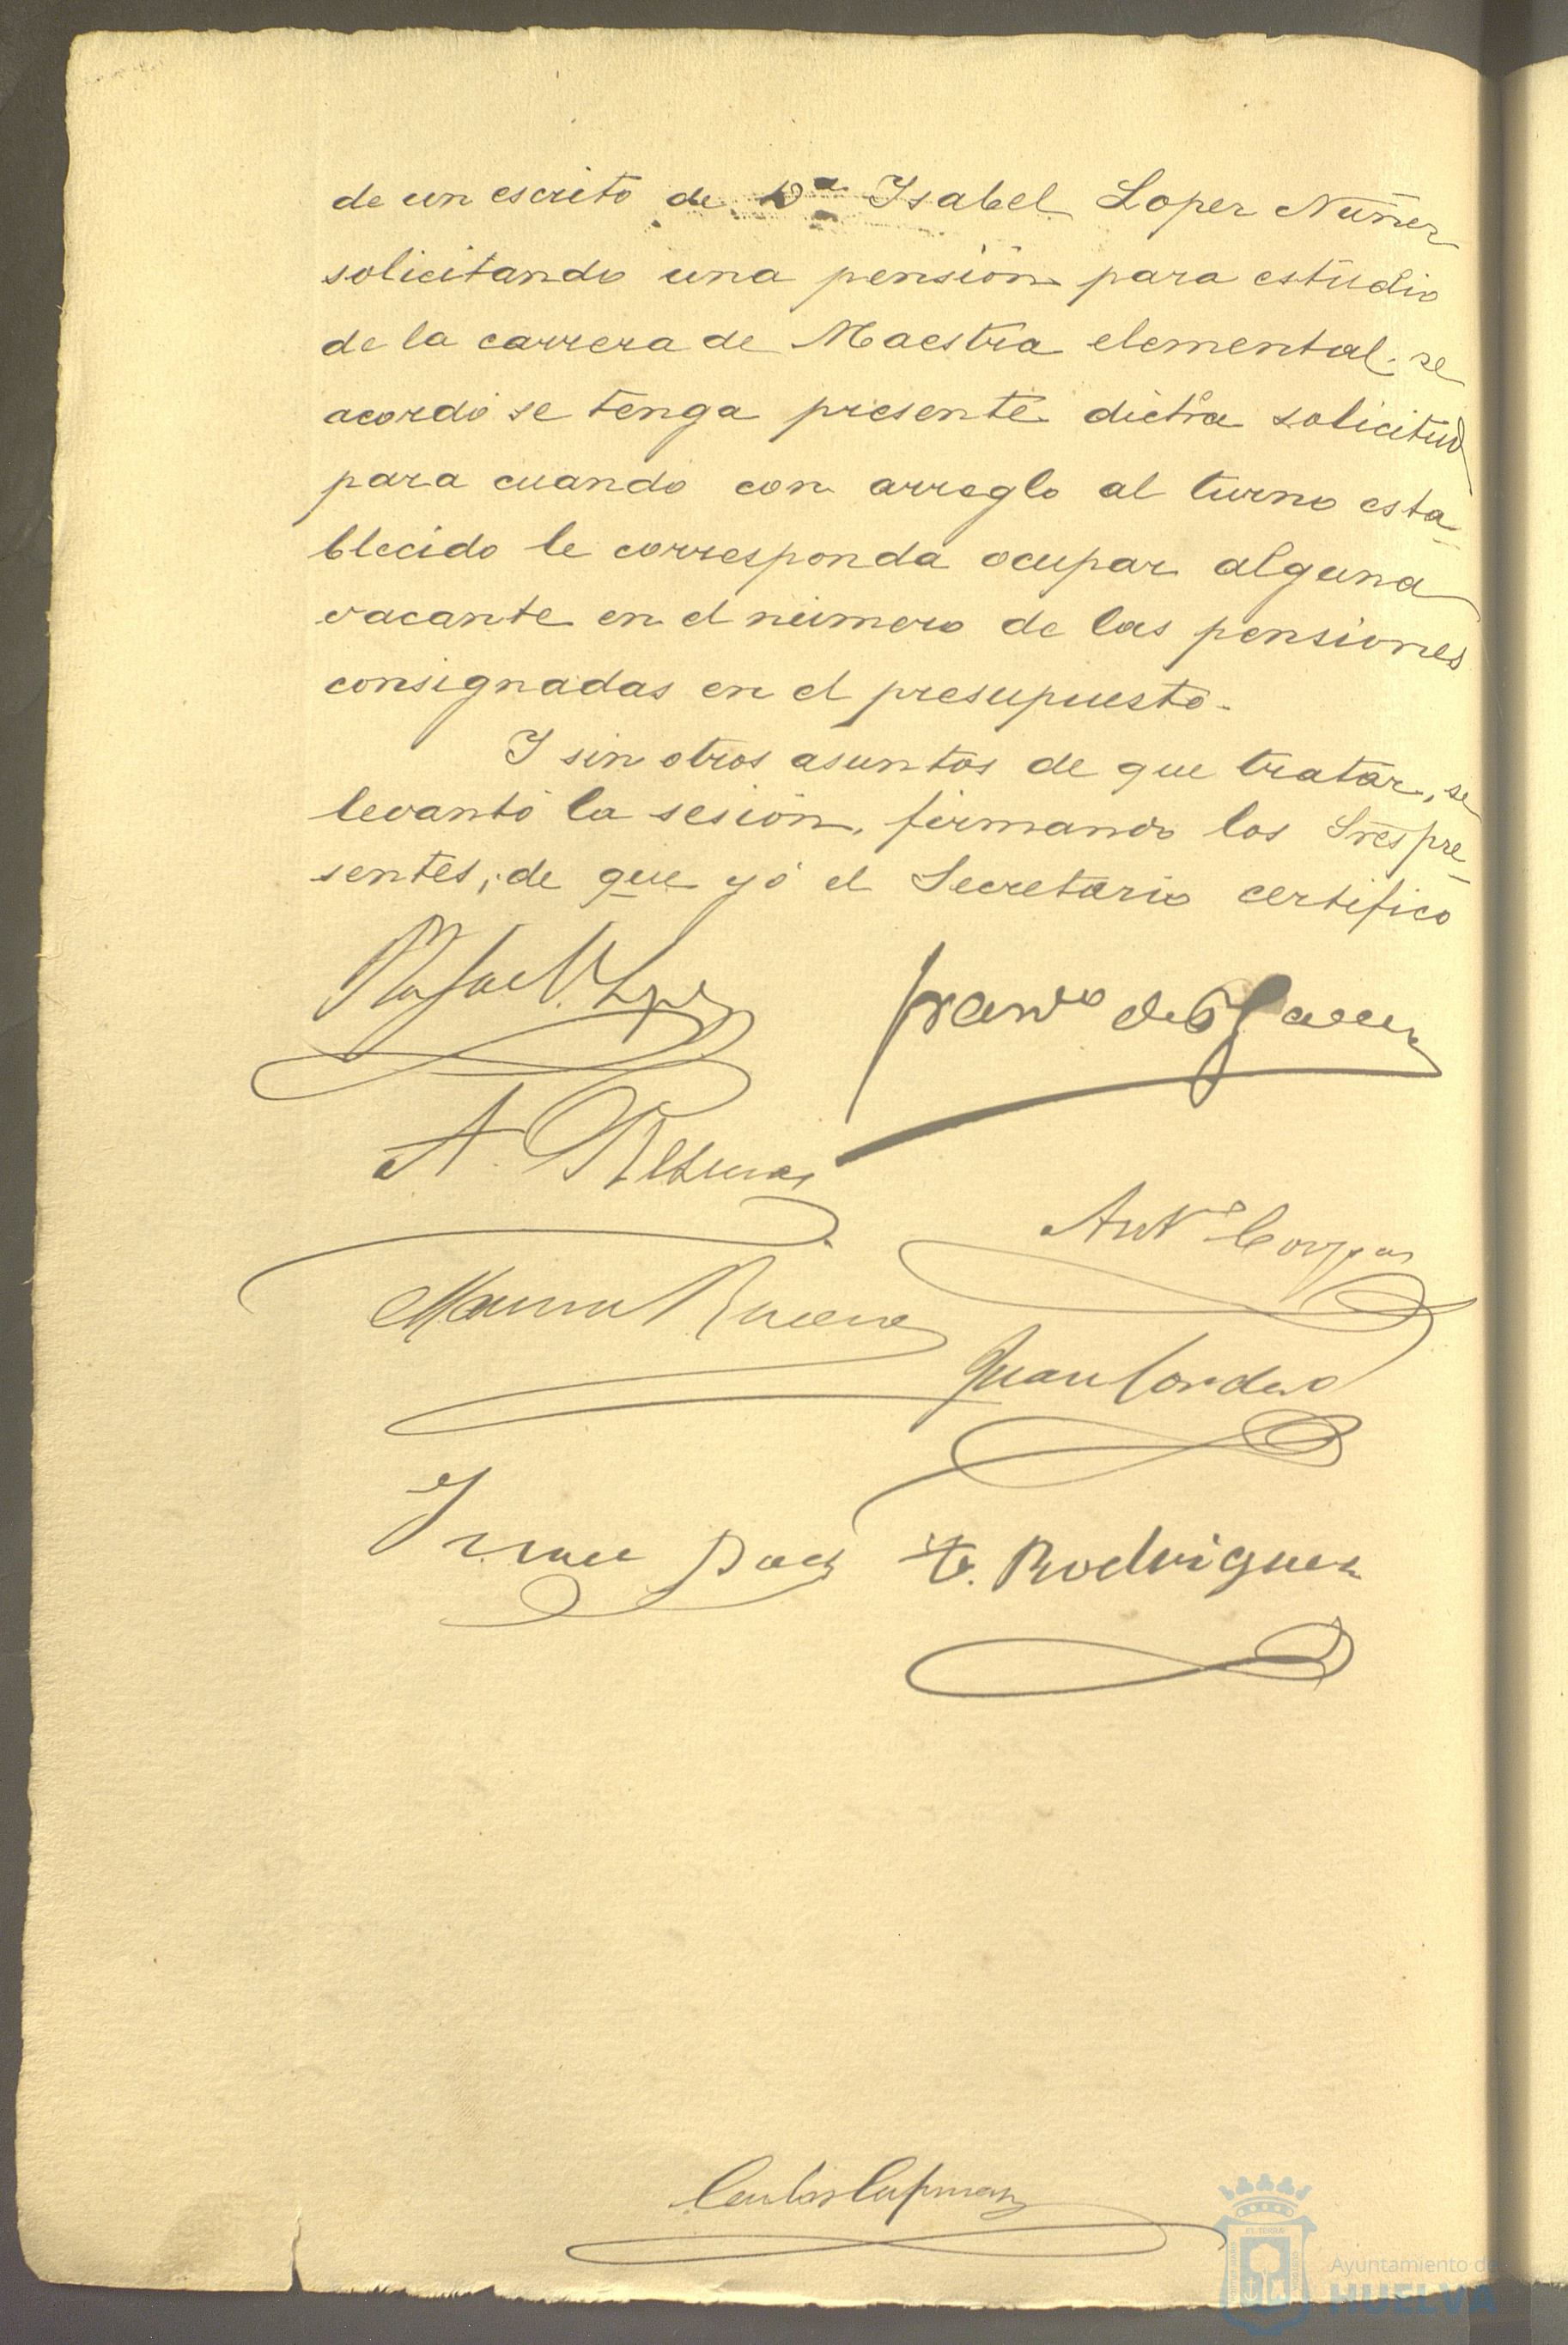 de un escrito de Dª Isabel Loper Nuñer
solicitando una pensión para estudio
de la carrera de Maestra elemental. se
acordó se tenga presente dicha solicitud
para cuando con arreglo al turno esta-
blecido le corresponda ocupar alguna
vacante en el número de las pensiones
consignadas en el presupuesto.
Y sin otros asuntos de que tratar, se
levantó la sesión, firmando los Sres pre-
sentes, de que yó el Secretario certifico
Rafael
A.
Juan Cordero
Rodriguez
Ayuntamiento de
HUELVA